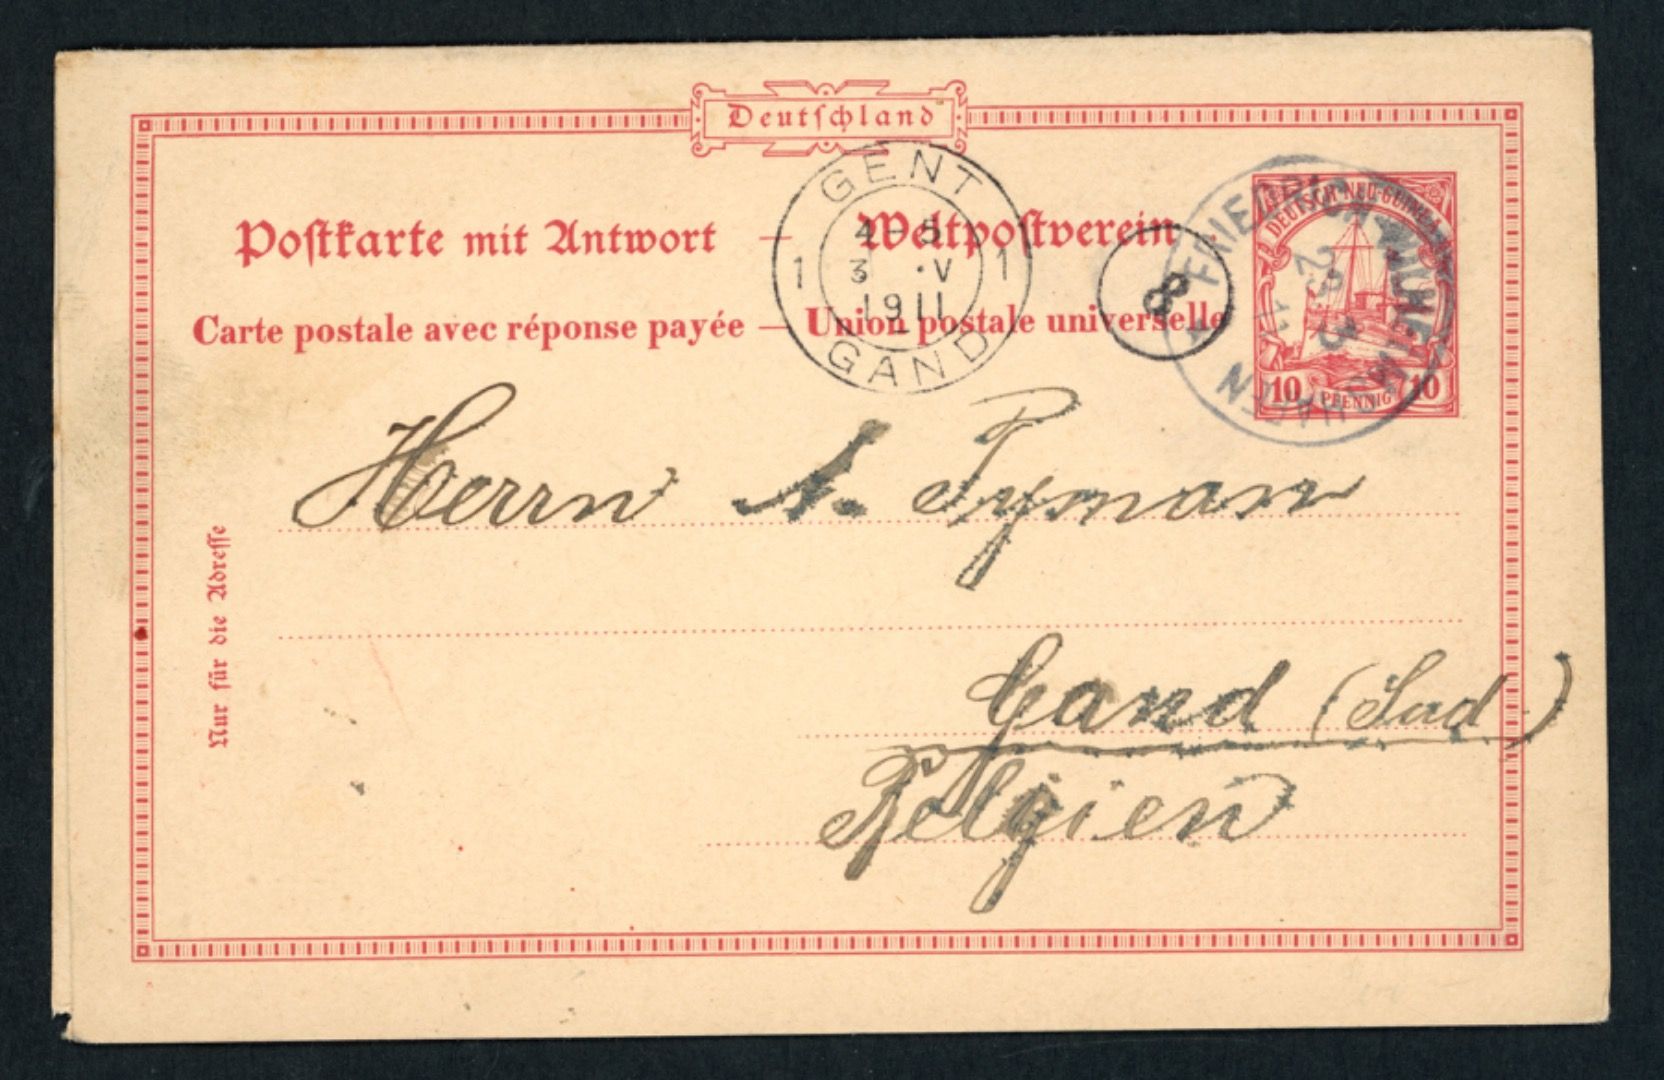 Deutschland
Postkarte mit Antwort — Weltpostverein
Carte postale avec réponse payée — Union postale universelle
GENT
4-5
1 3 ·V 1
1911
GAND
8
FRIEDRICH-WILHELMSHAFEN
23
3
11
DEUTSCH-NEU-GUINEA
10 PFENNIG 10
Herrn A. Tyman
Nur für die Adresse
Gand (Sud)
Belgien